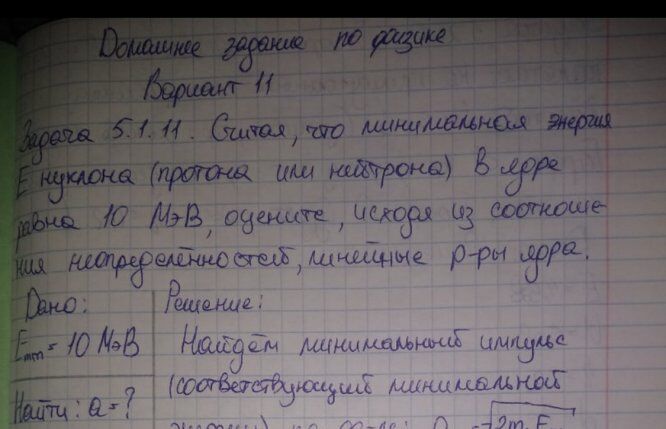 Домашнее задание по физике
Вариант 11
Задача 5.1.11. Считая, что минимальная энергия
E нуклона (протона или нейтрона) в ядре
равна 10 МэВ, оцените, исходя из соотноше
ния неопределённостей, линейные р-ры ядра.
Дано:
Emin = 10 МэВ
Найти: a = ?
Решение:
Найдём минимальный импульс
(соответствующий минимальной